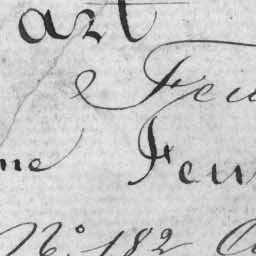 art
e Feu
me Feu
N.º 182